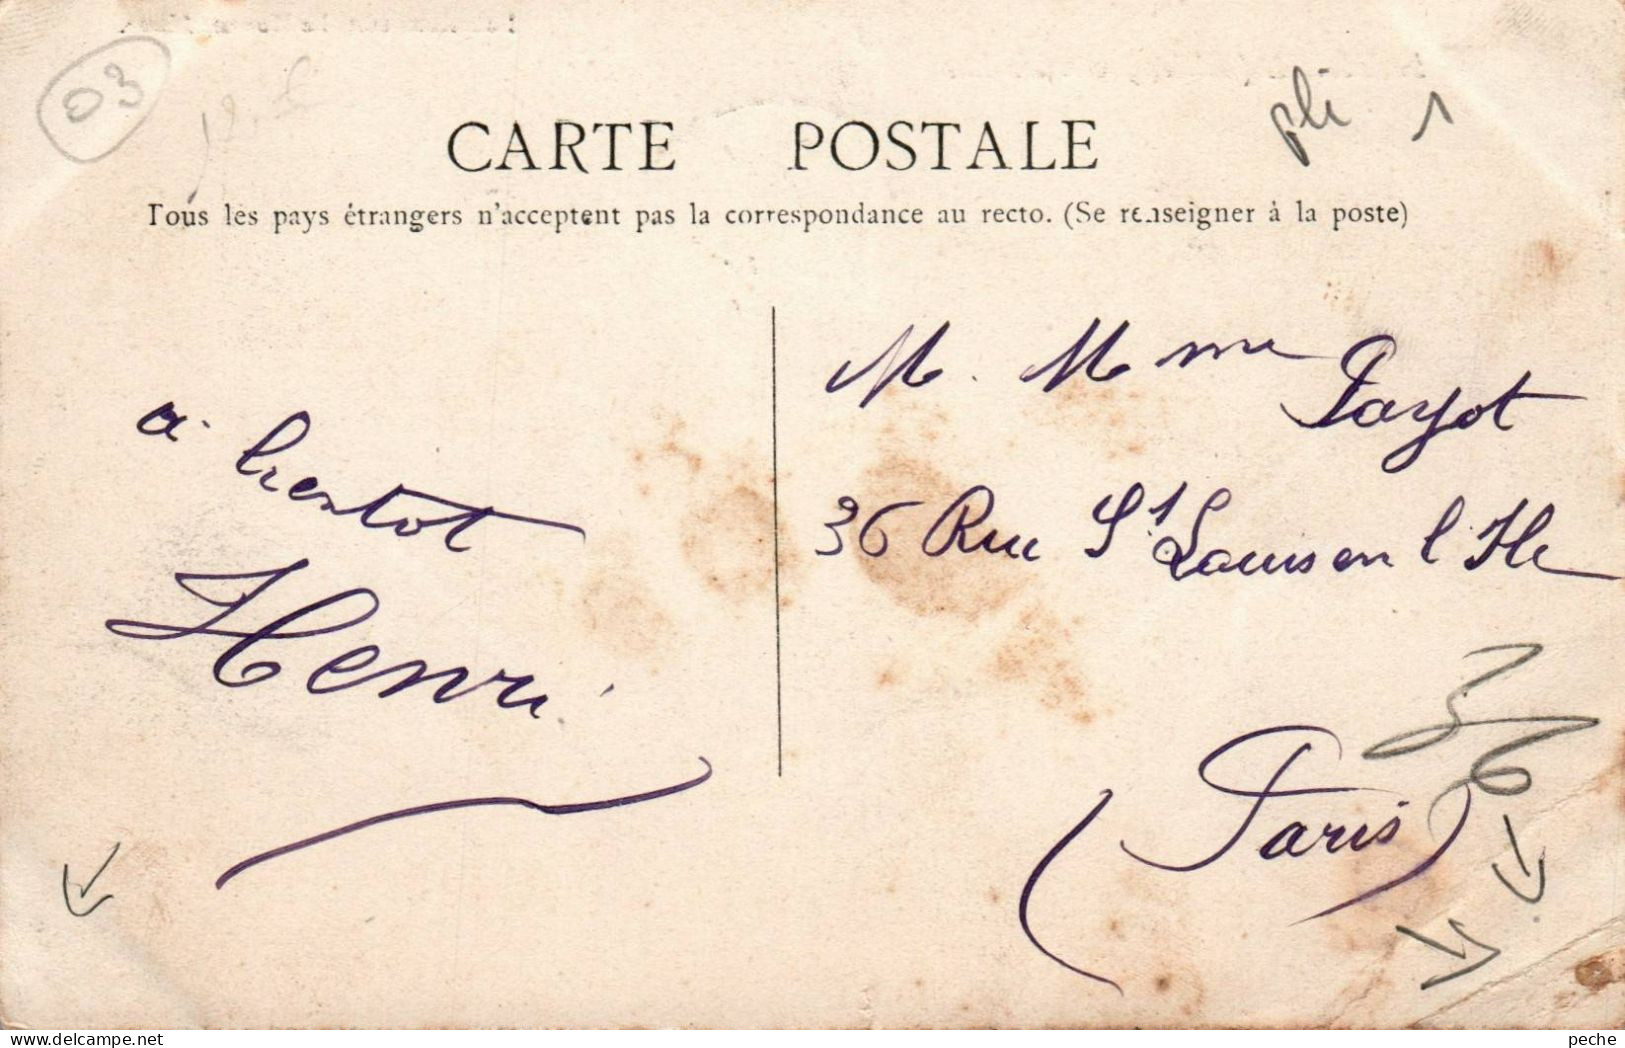 03
pli 1
CARTE POSTALE
Tous les pays étrangers n'acceptent pas la correspondance au recto. (Se renseigner à la poste)
M. Mme Payot
a bientot
36 Rue St Louis en l'Ile
Henri
36
(Paris)
peche